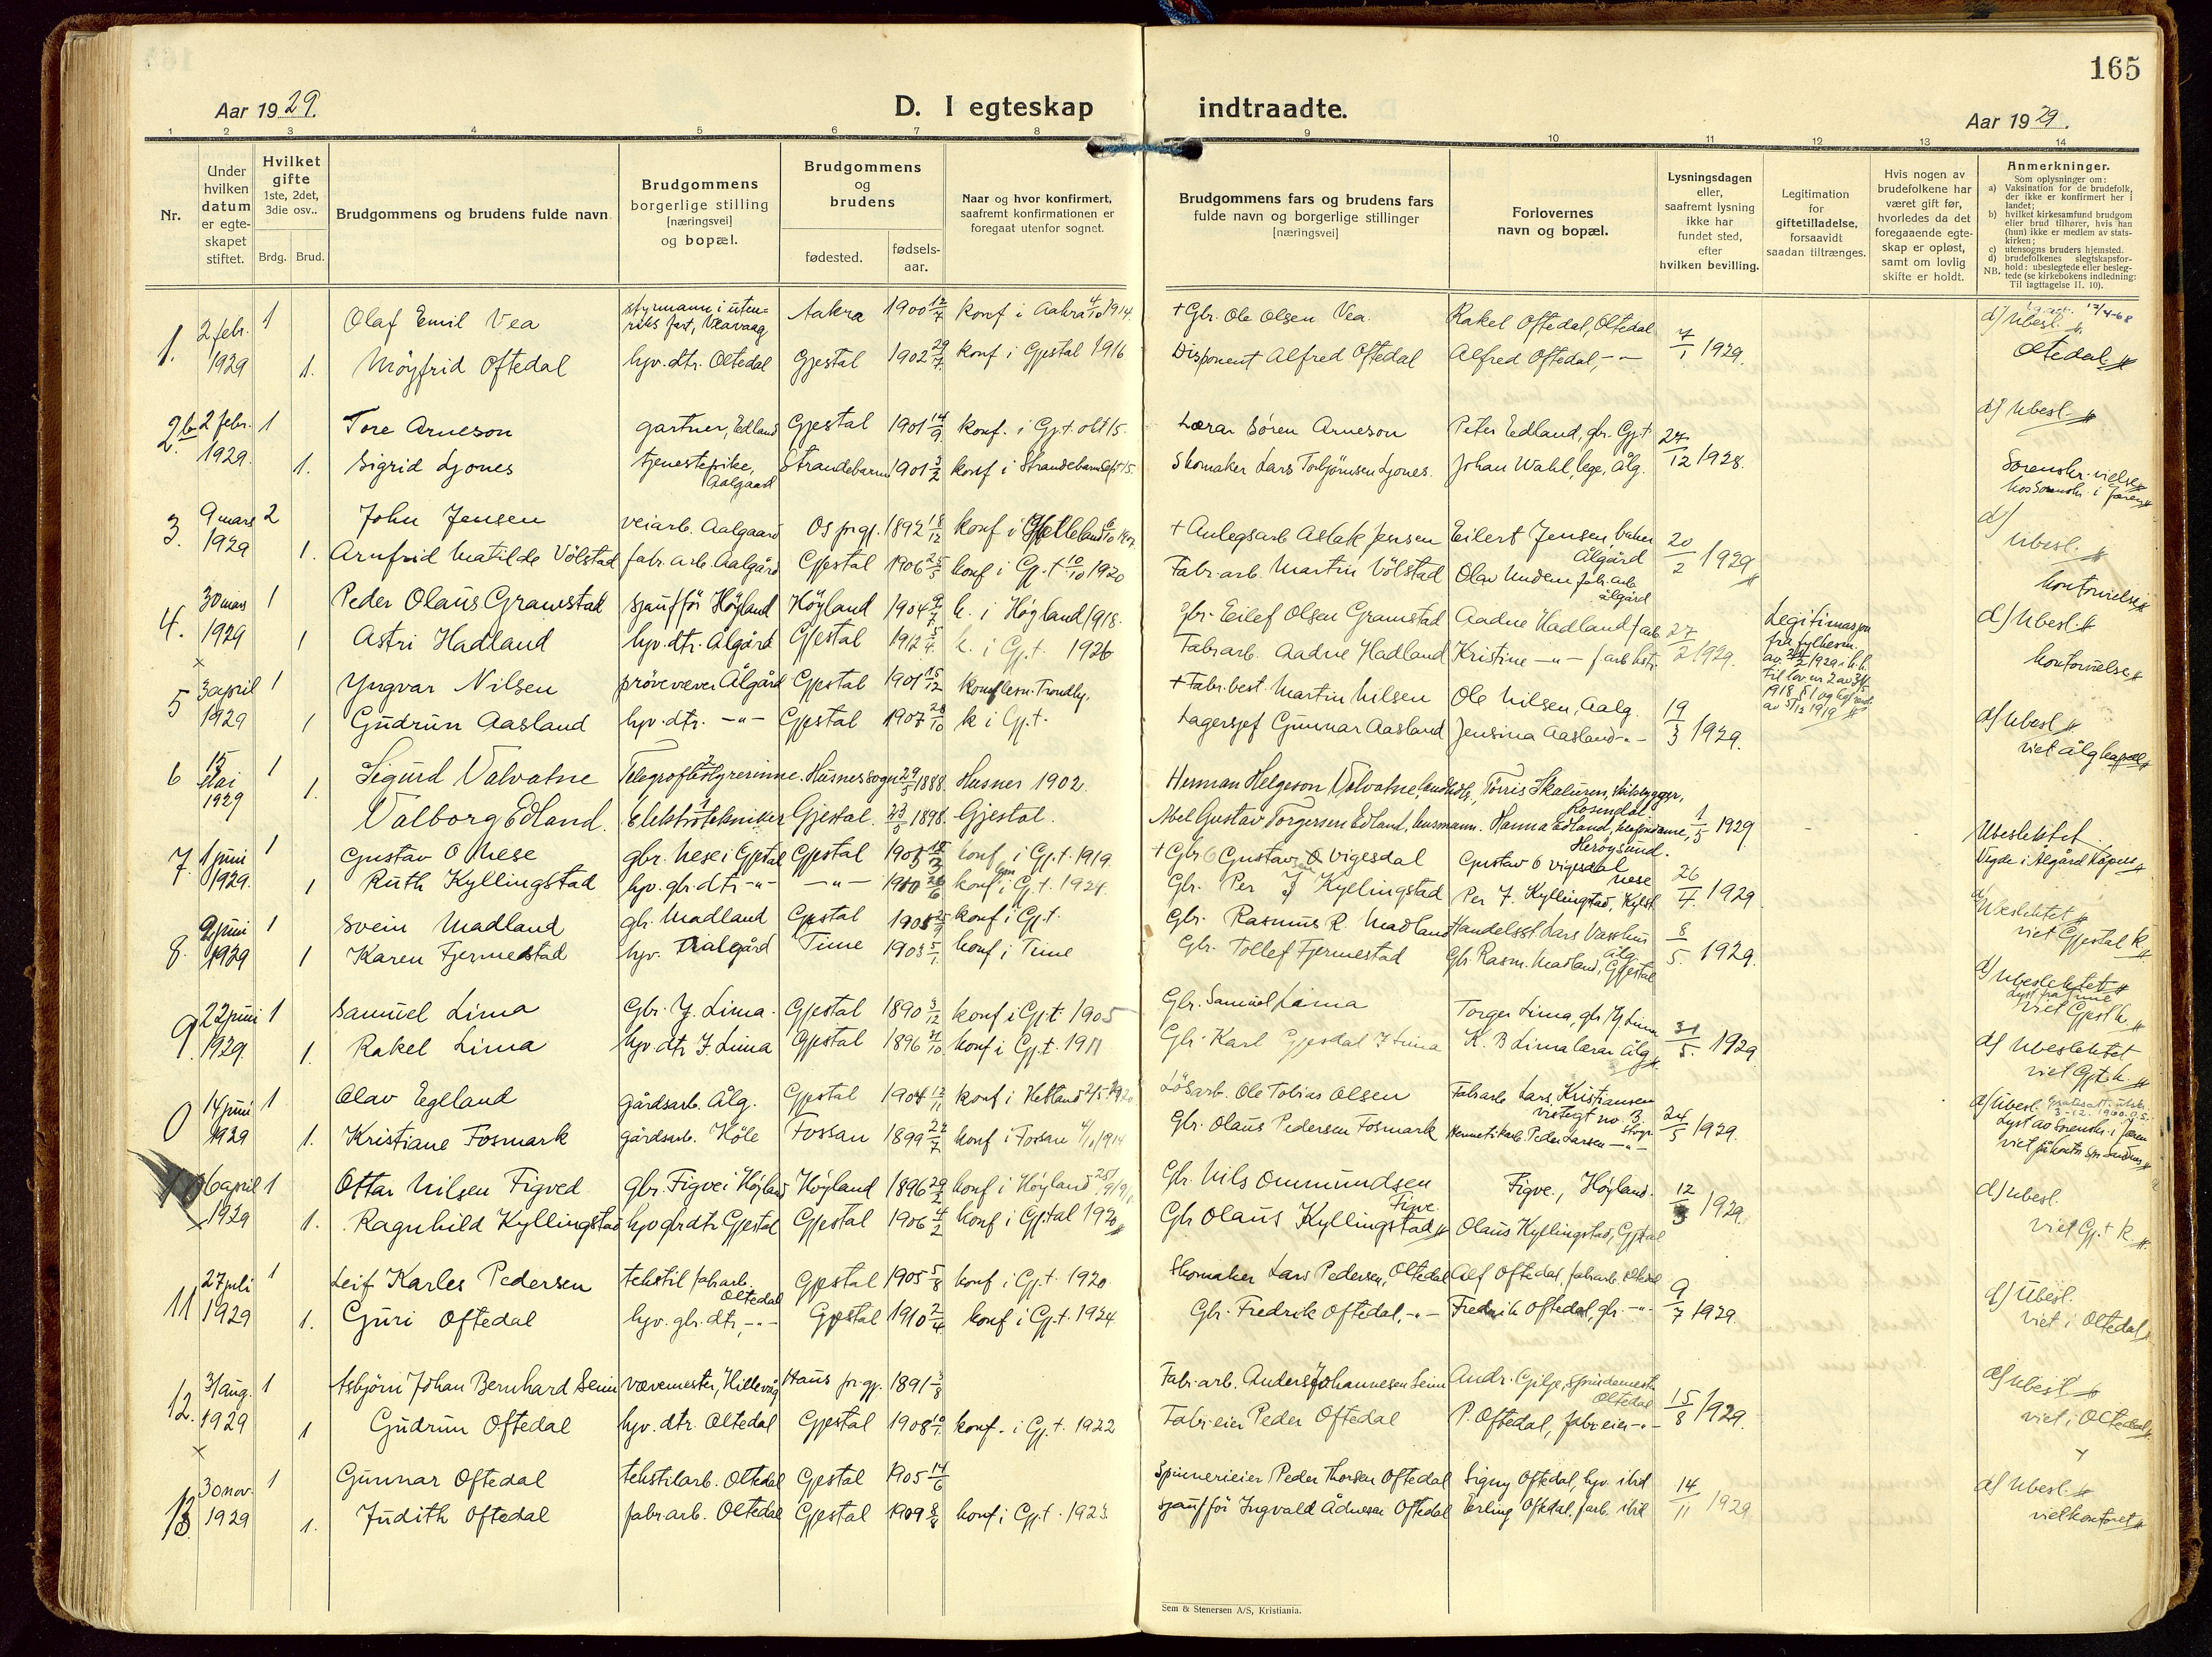 165
Aar 1929.
D. I egteskap indtraadte.
Aar 1929.
1 2 3 4 5 6 7 8 9 10 11 12 13 14
Nr.
Under hvilken datum er egte-skapet stiftet.
Hvilket gifte 1ste, 2det, 3die osv..
Brdg. Brud.
Brudgommens og brudens fulde navn.
Brudgommens borgerlige stilling [næringsvei] og bopæl.
Brudgommens og brudens
fødested.
fødsels-aar.
Naar og hvor konfirmert, saafremt konfirmationen er foregaat utenfor sognet.
Brudgommens fars og brudens fars fulde navn og borgerlige stillinger [næringsvei]
Forlovernes navn og bopæl.
Lysningsdagen eller, saafremt lysning ikke har fundet sted, efter hvilken bevilling.
Legitimation for giftetilladelse, forsaavidt saadan tiltrænges.
Hvis nogen av brudefolkene har været gift før, hvorledes da det foregaaende egte-skap er opløst, samt om lovlig skifte er holdt.
Anmerkninger.
Som oplysninger om:
a) Vaksination for de brudefolk, der ikke er konfirmert her i landet;
b) hvilket kirkesamfund brudgom eller brud tilhører, hvis han (hun) ikke er medlem av stats-kirken;
c) utensogns bruders hjemsted.
d) brudefolkenes slegtskapsfor-hold: ubeslegtede eller besleg-tede (se kirkebokens indledning:
NB. Til iagttagelse II. 10).
1. 2 febr. 1 Olaf Emil Vea styrmann i uten-riks fart, Veavaag Aakra 1900 12/7 konf i Aakra 4/10 1914. +Gbr. Ole Olsen Vea. Rakel Oftedal, Oltedal 7/1 1929. d) Ubesl.
1929 1. Møyfrid Oftedal hjv. dtr. Oltedal Gjestal 1902 29/7 konf i Gjestal 1916 Disponent Alfred Oftedal Alfred Oftedal, -"- Oltedal
2. 2 febr. 1 Tore Arneson gartner, Edland Gjestal 1901 14/9 konf. i Gj.t. okt 15. Lærar Søren Arneson Peter Edland, gbr. Gj.t 27/12 1928. d) Ubesl.
1929. 1. Sigrid Ljones tjenestepike, Aalgaard Strandebarm 1901 3/2 konf i Strandebarm sept 15. Skomaker Lars Torbjørnsen Ljones. Johan Wahl, lege, Ålg. Sorenskr. vielse
3. 9 mars 2 John Jensen veiarb. Aalgaard Os prgj. 1892 18/12 + Anlegsarb Aslak Jensen Eilert Jensen Ålgård 20/2 1929 d) Ubesl.
1929 1. Arnfrid Matilde Völstad fabr. arb. Aalgård Gjestal 1906 25/5 konf i Gj.t 10/10 1920 Fabr. arb. Martin Völstad Olav Undem fabr. arb. ålgård kontorvielse
4. 30 mars 1 Peder Olaus Gramstad sjauffør Høyland Høyland 1904 9/7 k. i Høyland 1918. Gbr. Eilef Olsen Gramstad Aadne Hadland f arb. 27/2 1929. Legitimasjon d) Ubesl.
1929 1 Astri Hadland hjv. dtr. Ålgård Gjestal 1912 5/4 k. i Gj.t. 1926 Fabr arb. Aadne Hadland Kristine -"- kontorvielse
5 3 april 1 Yngvar Nilsen prøvevæver Ålgård Gjestal 1901 15/12 +Fabr. best. Martin Nilsen Ole Nilsen, Aalg. 19/3 1929. d) Ubesl
1929 1 Gudrun Aasland hjv. dtr. -"- Gjestal 1907 28/10 k i Gj.t. Lagersjef Gunnar Aasland Jensina Aasland -"- viet ålg kapel
6 15 Mai 1929 1 Sigurd Valvatne Telegrafbestyrerinne. Husnes sogn 29/5 1888. Husnes 1902. Herman Helgeson Valvatne, Torris Skaluren, skibsbygger, Rosendal. 1/5 1929
1. Valborg Edland. Elektrotekniker Gjestal. 23/5 1898. Gjestal. Abel Gustav Torgersen Edland, husmann. Hanna Edland, Herøysund. Ubeslektet
7. 1 juni 1 Gustav O Nese gbr. Nese i Gjestal Gjestal konf i Gj.t. 1919. +Gbr Gustav O Vigesdal Gustav O Vigesdal nese 26/4 1929 Vigde i Ålgård
1929. 1 Ruth Kyllingstad hjv. gbr. dtr -"- -"- 1910 konf i Gj.t. 1924. Gbr. Per J Kyllingstad Per J. Kyllingstad, Kylst.
8. 2 juni 1 Svein Madland gbr. Madland Gjestal konf i Gj.t. Gbr. Rasmus R. Madland Handelsst. Lars Vasshus ålg. 8/5. 1929. Ubeslektet
1929 1 Karen Fjermestad hjv. Ålgård Time 1903 5/1 konf i Time Gbr. Tollef Fjermestad Gbr. Rasm. Madland, Gjestal viet Gjestal k.
9. 22 juni 1 Samuel Lima Gbr. Y. Lima. Gjestal 1890 3/12 konf i Gj.t. 1905 Gbr. Samuel Lima Torger Lima, gbr Yj Lima 31/5. 1929 d) Ubeslektet
1929. 1. Rakel Lima hjv. dtr I. Lima Gjestal 1896 21/10 konf i Gj.t. 1911 Gbr. Karl Gjesdal I Lima K. B Lima lærar ålg d) Ubeslektet viet Gj.t. k.
0 14 juni 1 Olav Egeland gårdsarb. Ålg. Gjestal 1904 12/11 konf i Hetland Løsarb. Ole Tobias Olsen Fabr arb Lars Kristiansen 24/5 1929. d) Ubesl.
1929 1. Kristiane Fosmark gårdsarb. Høle Fossan 1899 22/7 konf i Fossan 1914 Gbr. Olaus Pedersen Fosmark Hermetikarb. Peder Larsen -"-
10 6 april 1 Ottar Nilsen Figved gbr. Figve i Høyland Høyland 1896 29/2 konf i Høyland Gbr. Nils Ommundsen Figve Figve, Høyland. 12/3 1929. d) Ubesl.
1929 1. Ragnhild Kyllingstad hjv gbr dtr Gjestal Gjestal 1906 4/2 konf i Gj.tal 1920 Gbr Olaus Kyllingstad Olaus Kyllingstad, Gjestal viet Gj.t k.
11 27 juli 1 Leif Karles Pedersen tekstil fabr arb. Oltedal Gjestal 1905 5/8 konf i Gj.t. 1920. Skomaker Lars Pedersen, Oltedal Alf Oftedal, fabr arb. Oltedal 9/7 1929. d) Ubesl.
1929 1. Guri Oftedal hjv. gbr. dtr, -"- Gjestal 1910 2/4 konf i Gj.t. 1924 Gbr. Fredrik Oftedal, -"- Fredrik Oftedal, gbr. -"- viet i Oltedal
12. 31 aug. 1 Asbjørn Johan Bernhard Seim vævemester, Hillevåg Haus pr. gj. 1891 3/8 Fabr. arb. Anders Johannesen Seim Andr. Gilje, spindemester Oltedal 15/8 1929. d) Ubesl
1929 1 Gudrun Oftedal hjv. dtr. Oltedal Gjestal 1908 konf. i Gj.t. 1922 Fabr. eier Peder Oftedal P. Oftedal, fabr. eier -"- viet i Oltedal
13. 30 nov. 1 Gunnar Oftedal tekstilarb. Oltedal Gjestal 1905 14/6 Spinnerieier Peder Thorsen Oftedal Signy Oftedal, hjv. ibid 14/11 1929. d) Ubesl.
1929 1. Judith Oftedal fabr arb. Oltedal Gjestal 1909 konf i Gj.t. 1923. sjauffør Ingvald Ådnesen Oftedal Erling Oftedal, f arb. ibid viet kontoret
Sem & Stenersen A/S, Kristiania.